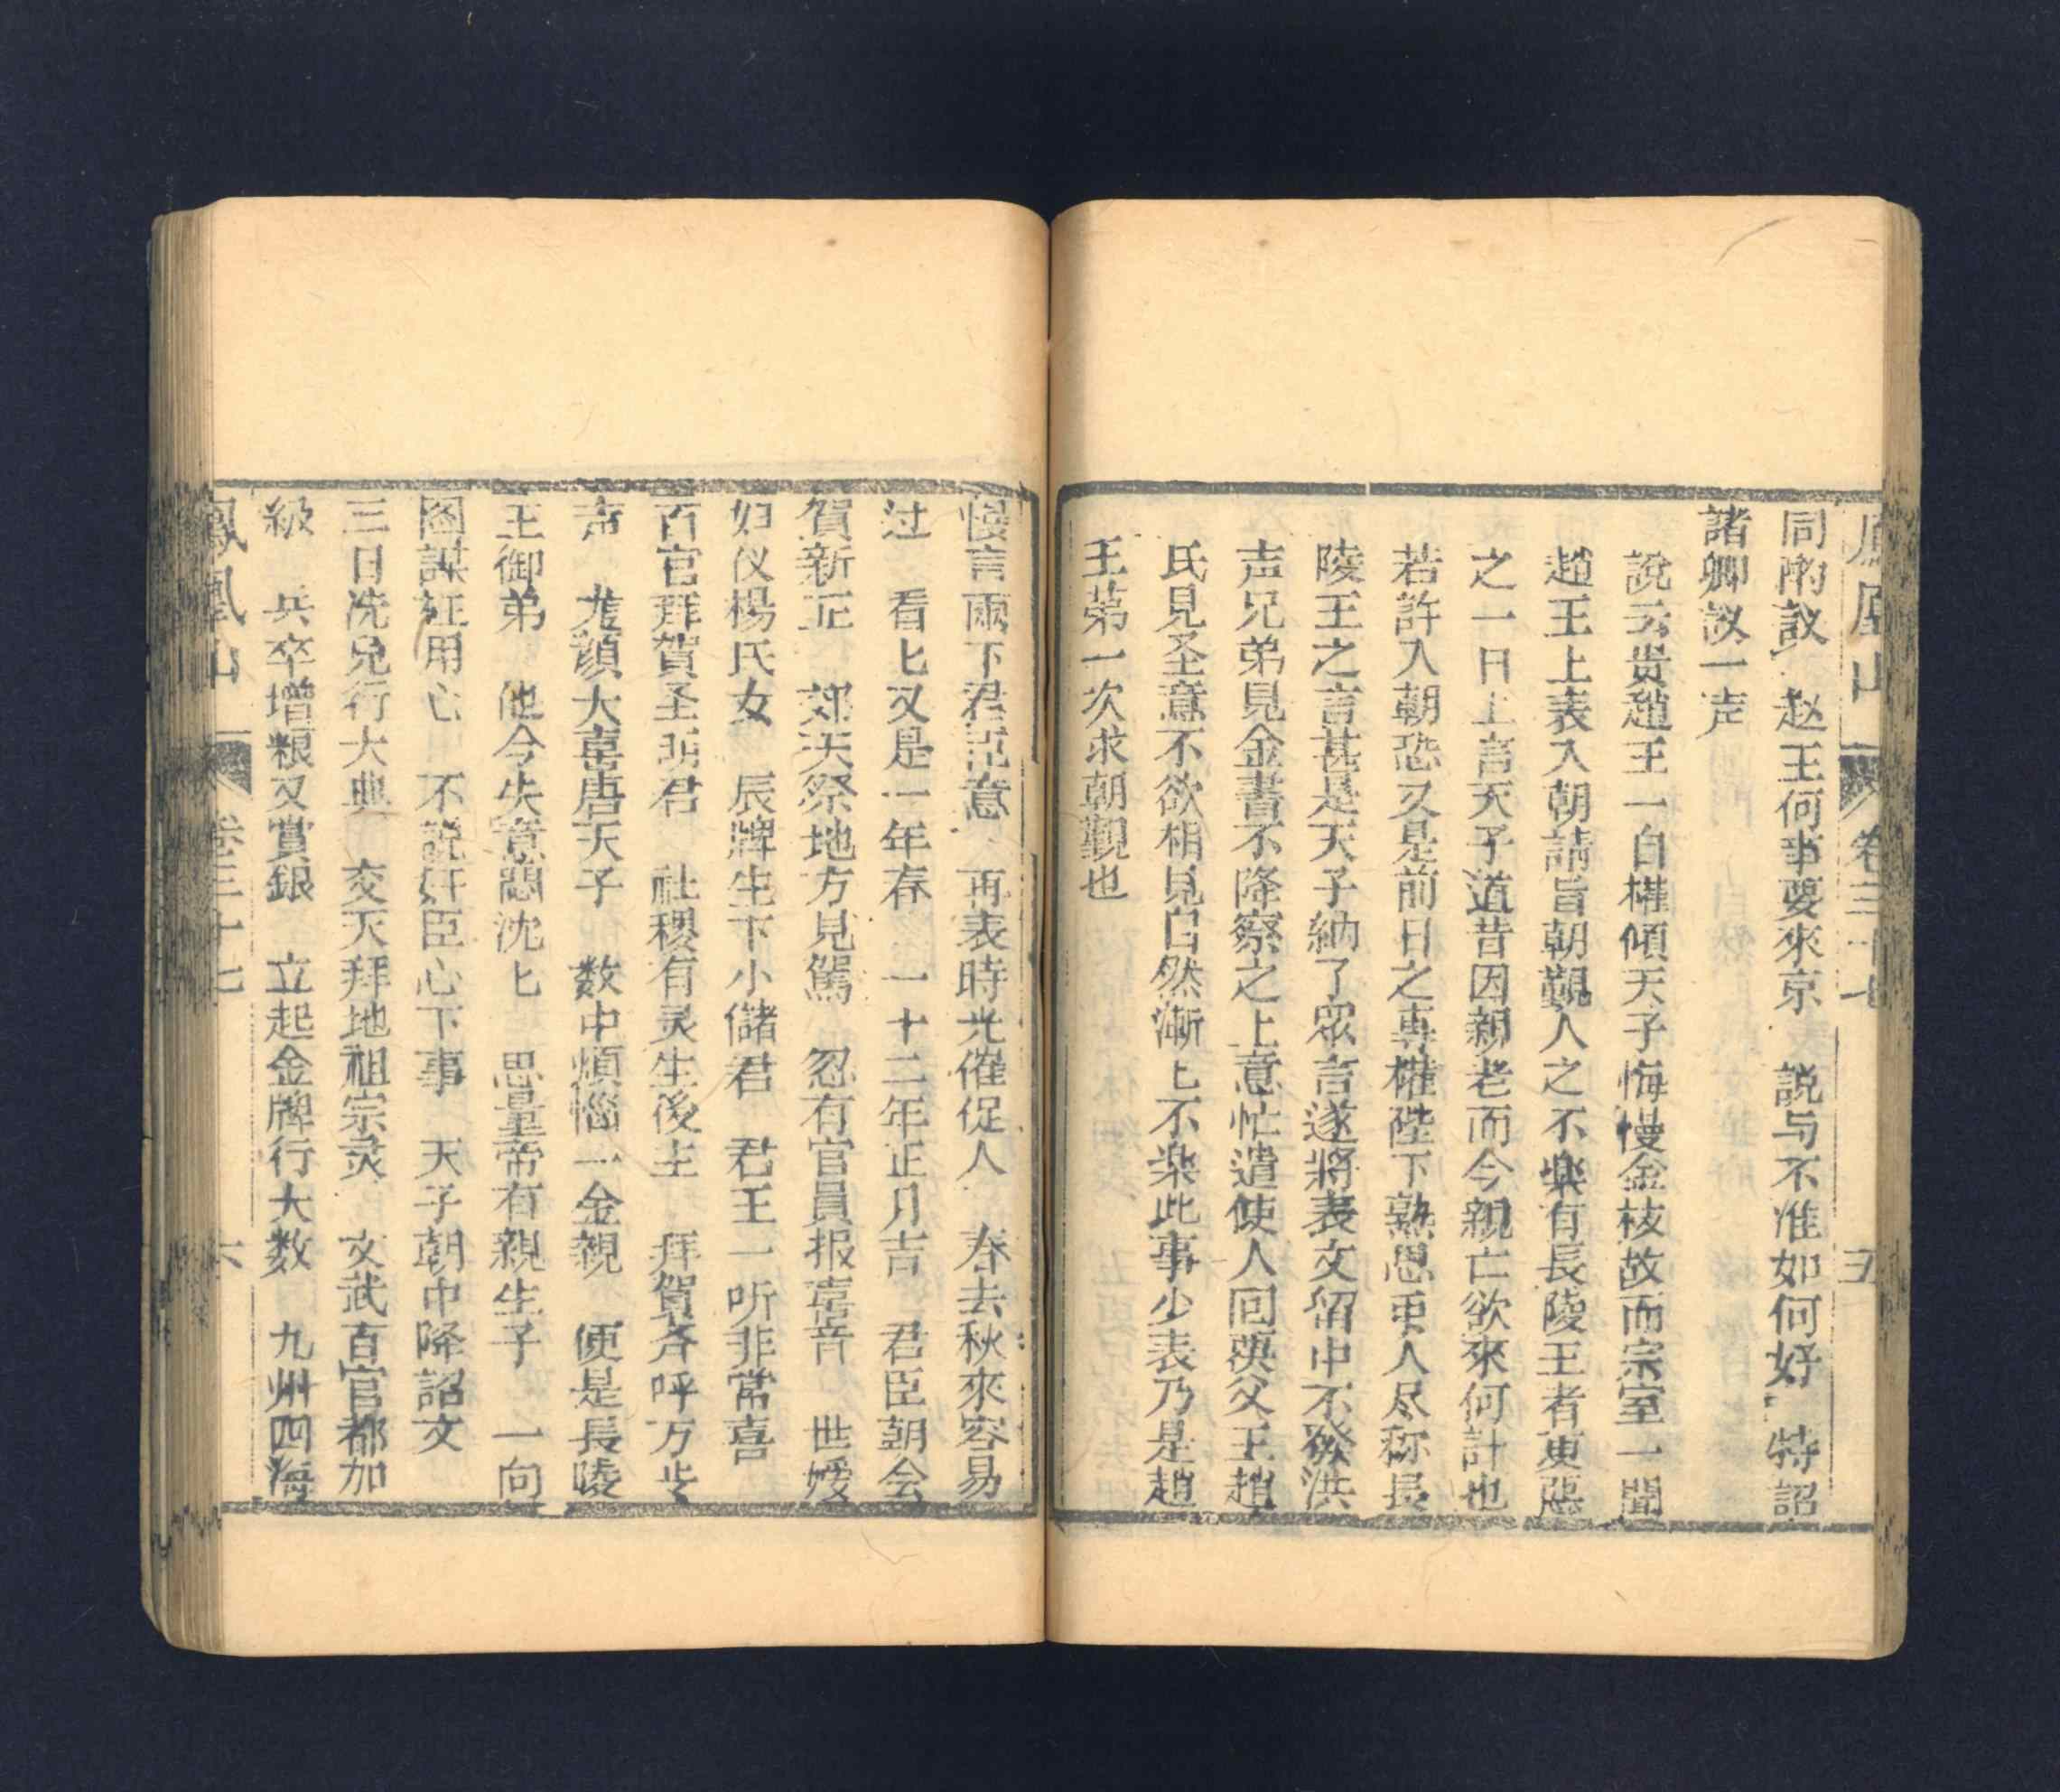 鳳凰山 卷三十七 五
同酌議 赵王何事要來京 説与不准如何好 特詔
諸卿議一声
說云贵趙王一自權傾天子悔慢金枝故而宗室一聞
趙王上表入朝請旨朝觐人之不樂有長陵王者東
之一日上言天子道昔因親老而今親亡欲來何計也
若許入朝恐又是前日之專權陛下熟思重人尽称長
陵王之言甚是天子納了眾言遂將表文留中不發洪
声兄弟見金書不降察之上意忙遣使人回英父王趙
氏見圣意不欲相見自然漸匕不楽此事少表乃是趙
王第一次求朝觐也
慢言兩下君臣意 再表時光催促人 春去秋來容易
过 看匕又是一年春 一十二年正月吉 君臣朝会
賀新正 郊天祭地方見駕 忽有官員报喜音 世嫒
妃仪楊氏女 辰牌生下小儲君 君王一听非常喜
百官拜賀圣明君 社稷有灵生後主 拜賀斉呼万岁
声 龙顔大喜唐天子 数中煩惱一金親 便是長陵
王御弟 他今失意悶沈匕 思量帝有親生子 一向
图謀枉用心 不説奸臣心下事 天子朝中降詔文
三日洗兒行大典 交天拜地祖宗灵 文武百官都加
級 兵卒增粮又賞銀 立起金牌行大数 九州四海
鳳凰山 卷三十七 六